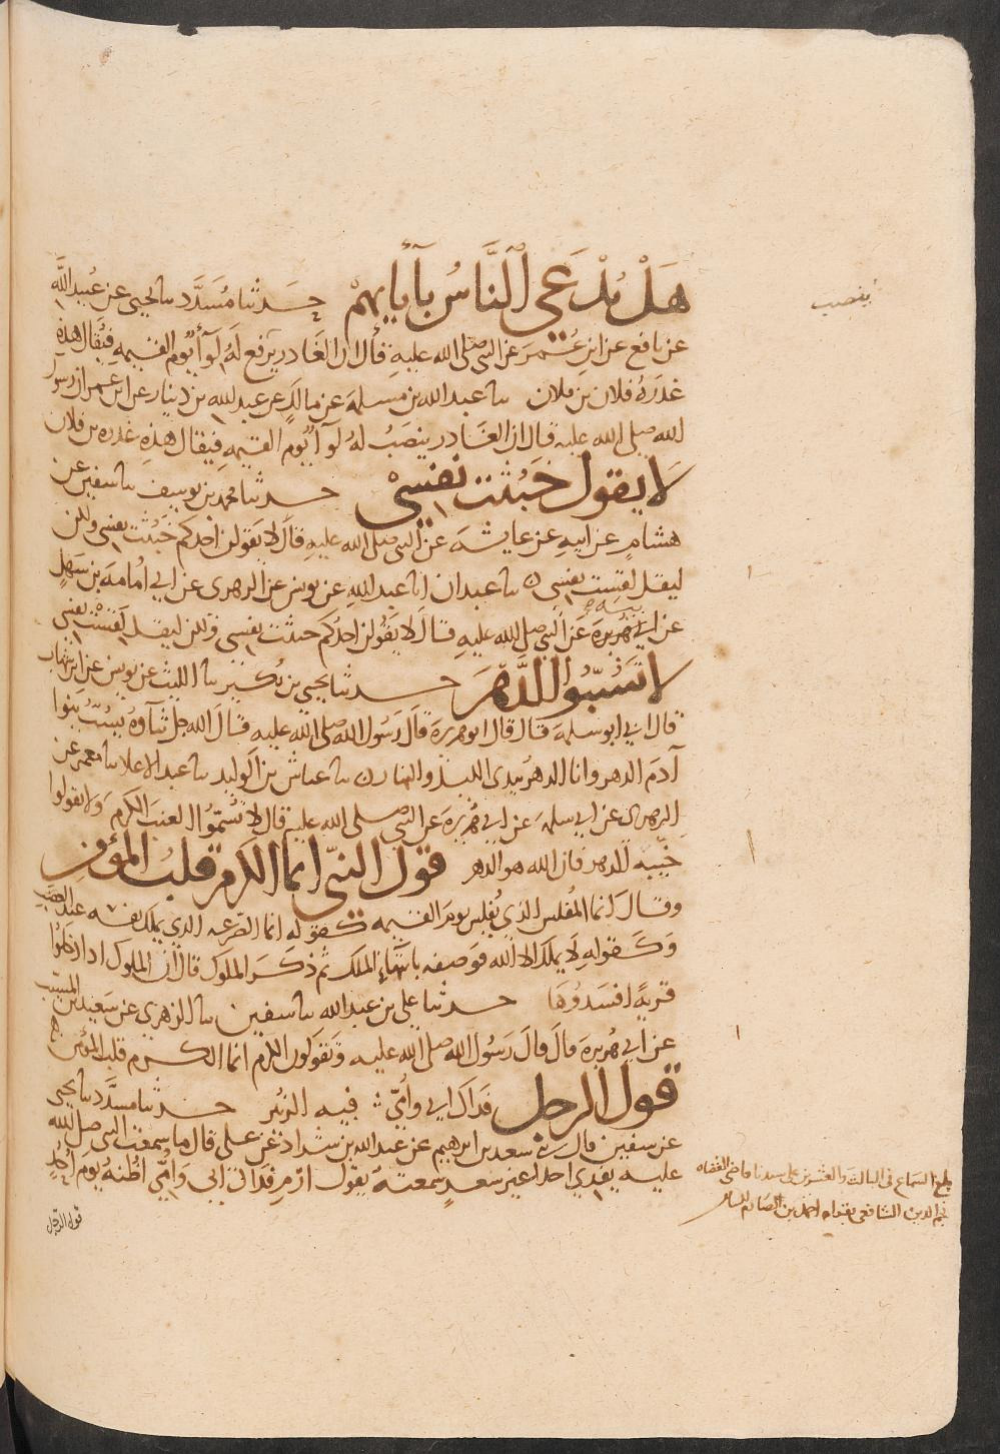 هَلْ يُدْعَى النَّاسُ بآبايهمْ حَدثنا مُسَدَّد نا يحيى عن عُبيد اللَّه
عن نافع عن ابن عُمَرَ عن النبي صلى الله عليه قال ان الغَادر يرفع لهُ لوآءٌ يوم القيمه فيُقَال هذه
غدرَهُ فلان بن فلان نا عبد الله بن مسلمة عن مالك عن عبد الله بن دينار عن ابن عمر ان رسول
الله صلى الله عليه قال ان الغَادر ينصَبُ لهُ لوآءٌ يوم القيمه فيقال هذهِ غدره بن فلان
لا يقول خَبُثت نفسيْ حدثنا محمد بن يوسف نا سفين عن
هشامٍ عن ابيهِ عن عايشهَ عن النبي صلى الله عليه قالَ لا يقولن احدكم خَبُثت نفسي ولكن
ليقل لقِست نفسي ن نا عبدان انا عبد الله عن يونس عن الزهرى عن ابي اُمامهَ بن سَهلٍ
عن ابي هُريرة عن النبي صلى الله عليه قالَ لا يقُولن احدُكم خبثت نفسي ولكن ليقل لقِسَتْ نفسي
لا تسُبّوا الدَّهرَ حدثنا يحيى بن بُكير نا الليث عن يونس عن ابن شهاب
قال اني ابو سلمة قال قال ابو هريرة قال رَسُول الله صلى الله عليه قال الله جل ثناوهُ يسُبُّ بَنُوا
آدمَ الدهر وانا الدهرُ بيدي الليلُ والنهارن نا عياش بن الوليد نا عبد الاعلا نا معمر عن
الزهرى عن ابي سلمه عن ابي هُريرة عن النبي صلى الله عليه قال لا تُسَمُّوا العنبَ الكرم وَلا يقولوا
خيبه الدهر فان الله هو الدهر قول النبّى انما الكرم قلبُ المؤمن
وقال انما المُفلس الذي يُفلس يوم القيمه كقوله انما الصرعه الذى يملك نفسه عند الغضب
وَكقولهِ لَا يملك الا الله فوَصفه بانتهاءِ الملك ثم ذكرَ الملوكَ قال ان الملوك اذا دخلوا
قريةً افسَدُوهَا حدثنا على بن عبد الله نا سفين نا الزهري عن سَعيد بن المسيب
عن ابي هُريره قالَ قالَ رَسُول الله صلى الله عليه وَيقولون الكرم انما الكرم قلب المؤمن
قول الرجل فداك ابي وأُمِّى فيه الزبُير حدثنا مسدَّد نا يحيى
عن سفين قال سعد بن ابرهيم عن عبد الله بن شداد عن على قال ما سمعت النبي صلى الله
عليه يفدي احدا غير سعدٍ سمعته يقول ارمِ فداك ابى وَامّي اظُنهُ يومَ اُحُدٍ
قول الرجل
ينصب
بلغ السماع في الثالث والعشرين على سيدنا قاضي القضاه
نجم الدين الشافعى بقراه احمد بن